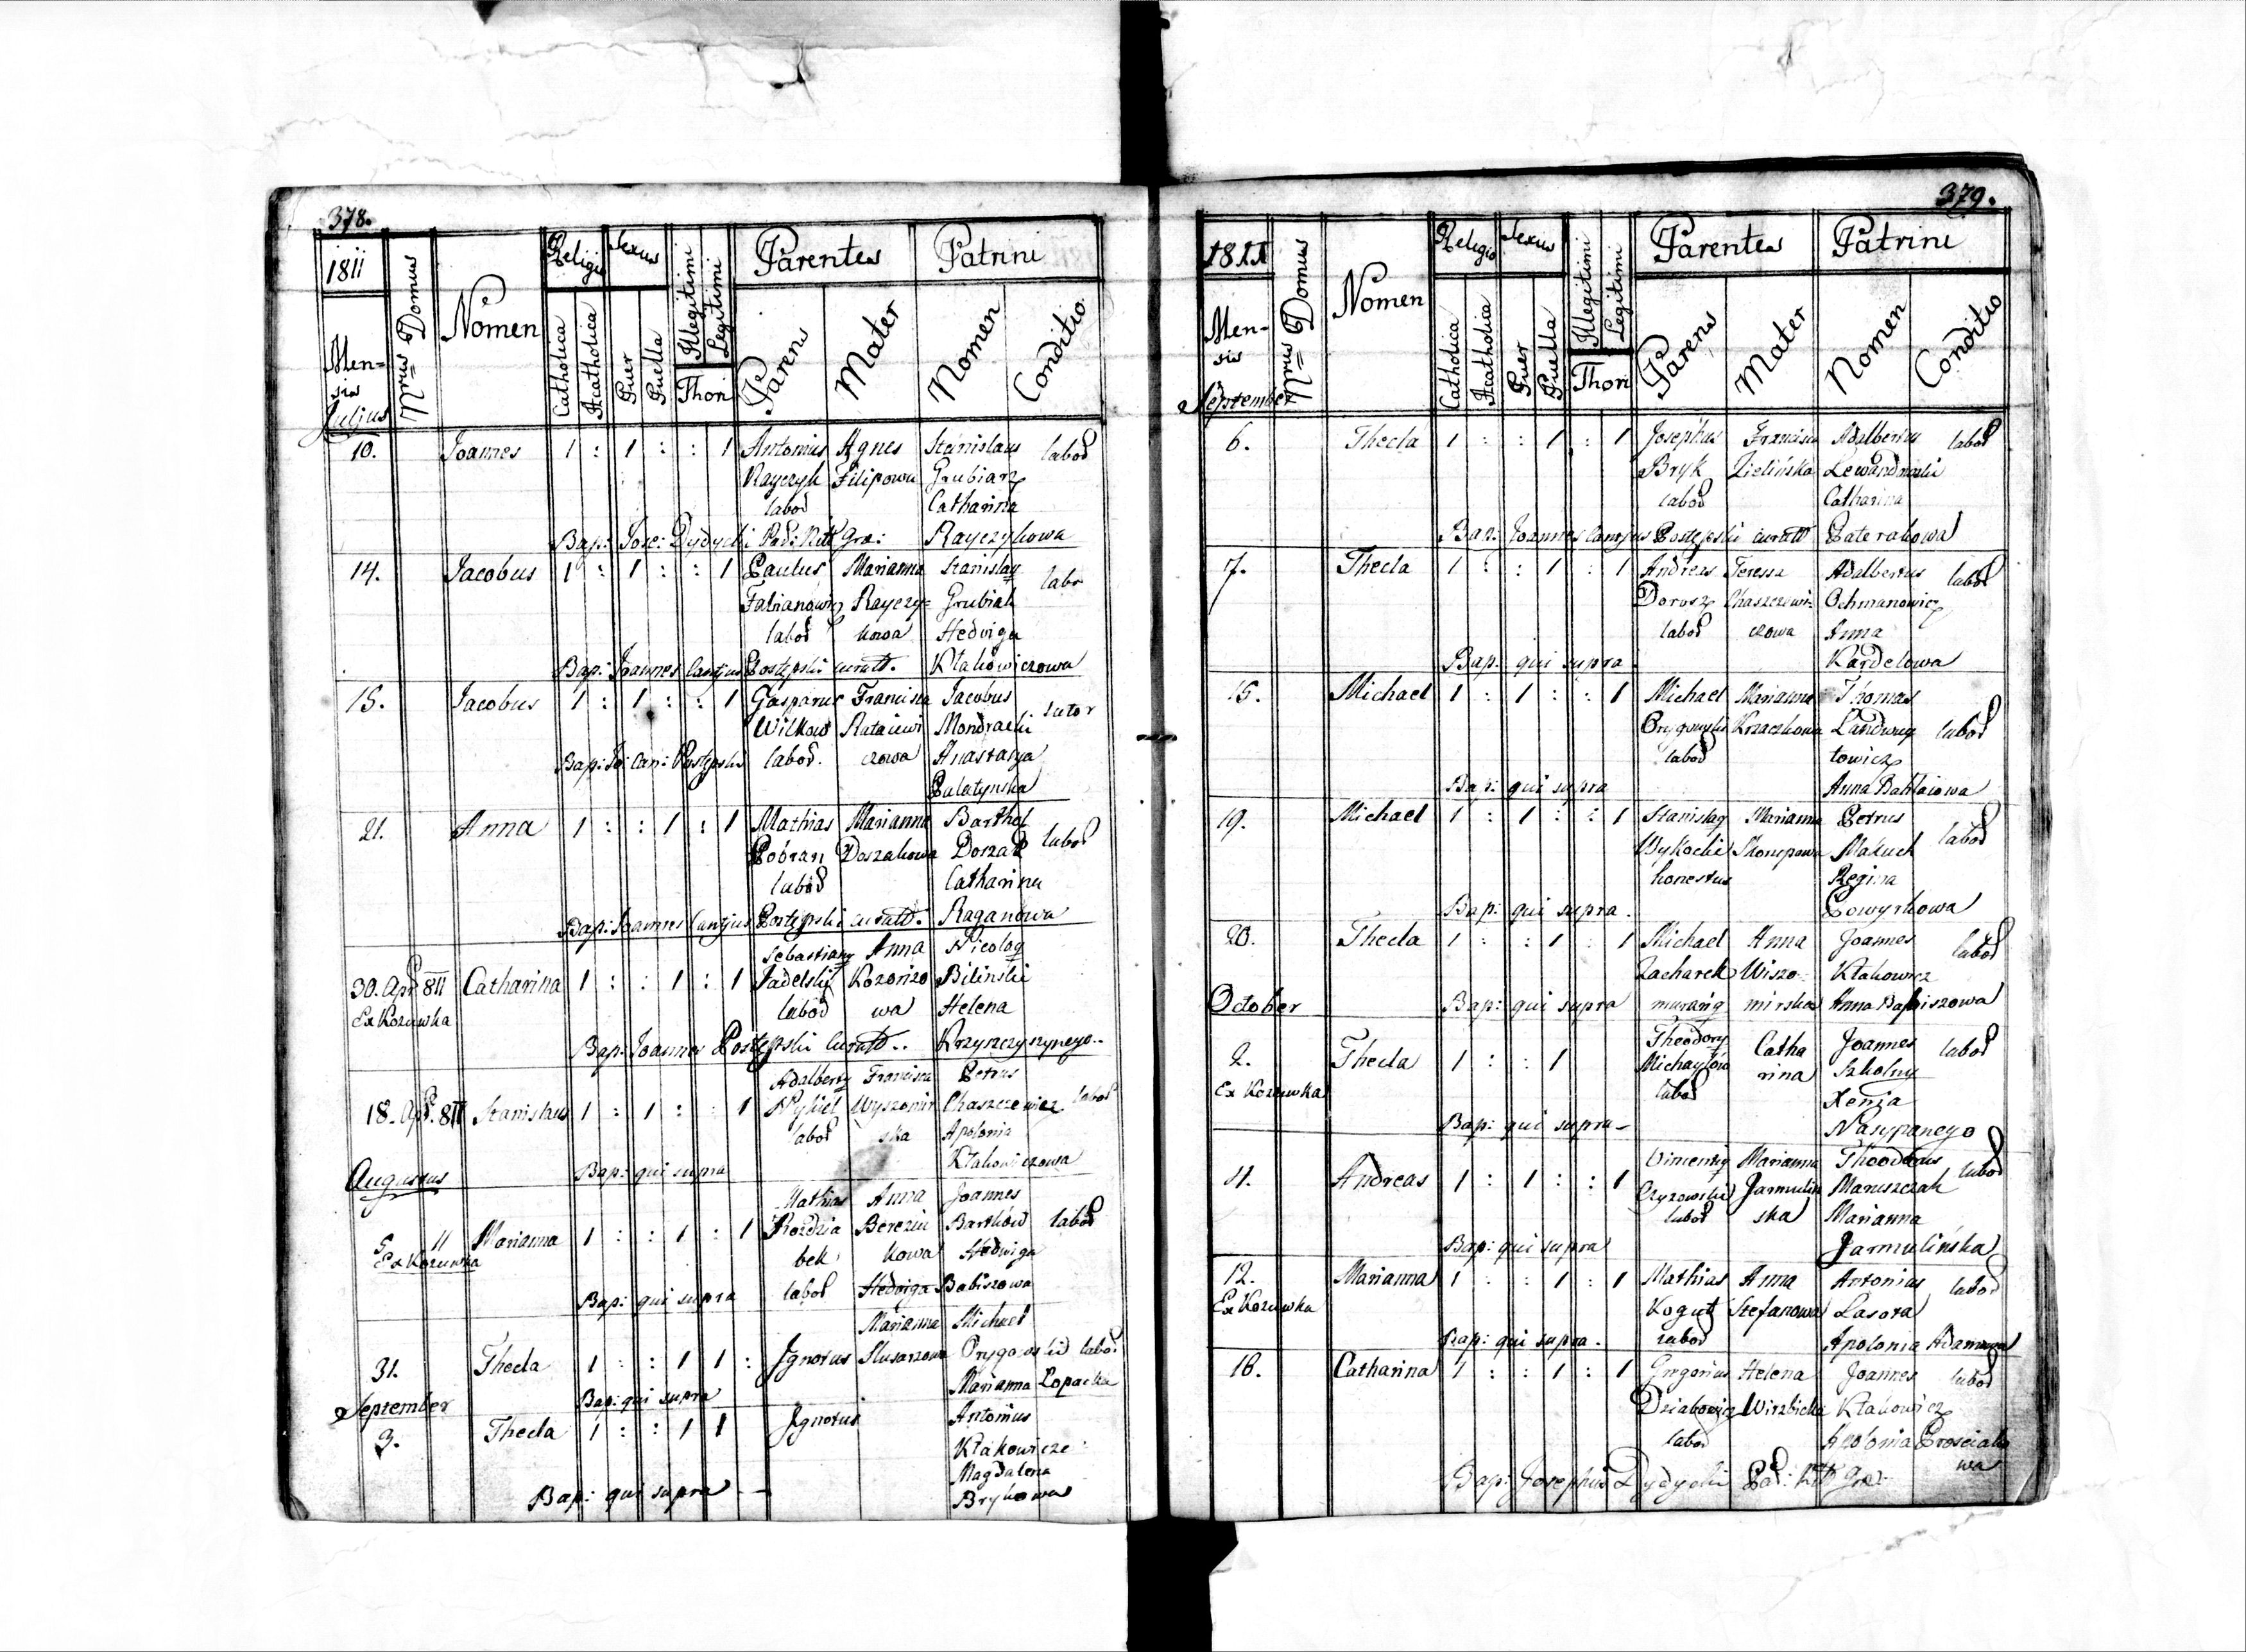 378.
1811
Nrus Domus
Nomen
Religio
Sexus
Illegitimi
Legitimi
Parentes
Patrini
Mensis
Julius
Catholica
Acatholica
Puer
Puella
Thori
Parens
Mater
Nomen
Conditio
10. Joannes 1 : 1 : : 1 Antonius Agnes Stanislaus labor
Rayczyk Filipowa Grubiarz
labor Catharina
Bap: Jose: Dydycki Par: Ritt Gra: Rayczykowa
14. Jacobus 1 : 1 : : 1 Paulus Marianna Stanislaq labr
Fabianowicz Rayczy= Grubiak
labor kowa Hedviga
Bap: Joannes Cantjus Postępski curatt. Kłakowiczowa
15. Jacobus 1 : 1 : : 1 Gasparus Francisca Jacobus
Wilkow Rataiewi Mondracki sutor
Bap: Jo: Can: Postępski labor. czowa Anastasya
Palatynska
21. Anna 1 : : 1 : 1 Mathias Marianna Barthol
Pobran Doszakowa Doszak labor
labor Catharina
Bap: Joannes Cantjus Postępski curatt. Raganowa
Sebastianq Anna Nicolaq
30. Apr 811 Catharina 1 : : 1 : 1 Jadelski Kozorizo Bilinski
Ex Kozuwka labor wa Helena
Bap: Joannes Postępski Curatt.. Krzyszczyszynego..
Adalbertq Francisca Petrus
18. Apr. 811 Stanislaus 1 : 1 : : 1 Nykiel Wyszomir Chaszczewicz labor
labor ska Apolonia
Augustus Bap: qui supra Kłakowiczowa
Mathias Anna Joannes
5 11 Marianna 1 : : 1 : 1 Rozdzia Bereziu Bartków labor
Ex Kozuwka bek kowa Hedwiga
Bap: qui supra labor Hedviga Babiszowa
Marianna Michael
31. Thecla 1 : : 1 1 : Ignotus Slusarzowa Prygowski labor
Bap: qui supra Marianna Lopacka
September
3. Thecla 1 : : 1 1 Ignotus Antonius
Kłakowicze
Magdalena
Bap: qui supra — Brykowa
379.
1811
Nrus Domus
Nomen
Religio
Sexus
Illegitimi
Legitimi
Parentes
Patrini
Mensis
September
Catholica
Acatholica
Puer
Puella
Thori
Parens
Mater
Nomen
Conditio
6. Thecla 1 : : 1 : 1 Josephus Francisca Adalbertus labor
Bryk Zielińska Lewandowski
labor Catharina
Bap: Joannes Cantjus Postępski curatt Paterakowa
7. Thecla 1 : : 1 : 1 Andreas Teressa Adalbertus labor
Dorosz Chaszczewi= Ochmanowicz
labor czowa Anna
Bap: qui supra Kardelowa
15. Michael 1 : 1 : : 1 Michael Marianna Thomas
Prygowski Krzaczkowa Landwuy labor
labor towicz
Bap: qui supra Anna Bahlaiowa
19. Michael 1 : 1 : : 1 Stanislaq Marianna Petrus
Wykocki Skorupowa Makuch labor
honestus Regina
Bap: qui supra. Powyrhowa
20. Thecla 1 : : 1 : 1 Michael Anna Joannes labor
Zacharek Wiszo= Kłakowicz
October Bap: qui supra murariq mirska Anna Babiszowa
Theodorq Catha Joannes labor
2. Thecla 1 : : 1 Michayłów rina Szkolny
Ex Kozuwka labor Xenia
Bap: qui supra— Nasypanego
Vincentiq Marianna Theodorus
11. Andreas 1 : 1 : : 1 Czyzowski Jarmulin Maruszczak labor
labor ska Marianna
Bap: qui supra Jarmulińska
12. Marianna 1 : : 1 : 1 Mathias Anna Antonius labor
Ex Kozuwka Kogut Stefanowa Lasota
Bap: qui supra. labor Apolonia Adamowa
16. Catharina 1 : : 1 : 1 Gregorius Helena Joannes labor
Dziabowicz Wirzbicka Kłakowicz
labor Apolonia Prosciako
Bap: Josephus Dydycki Par: Ritt Gra: wa